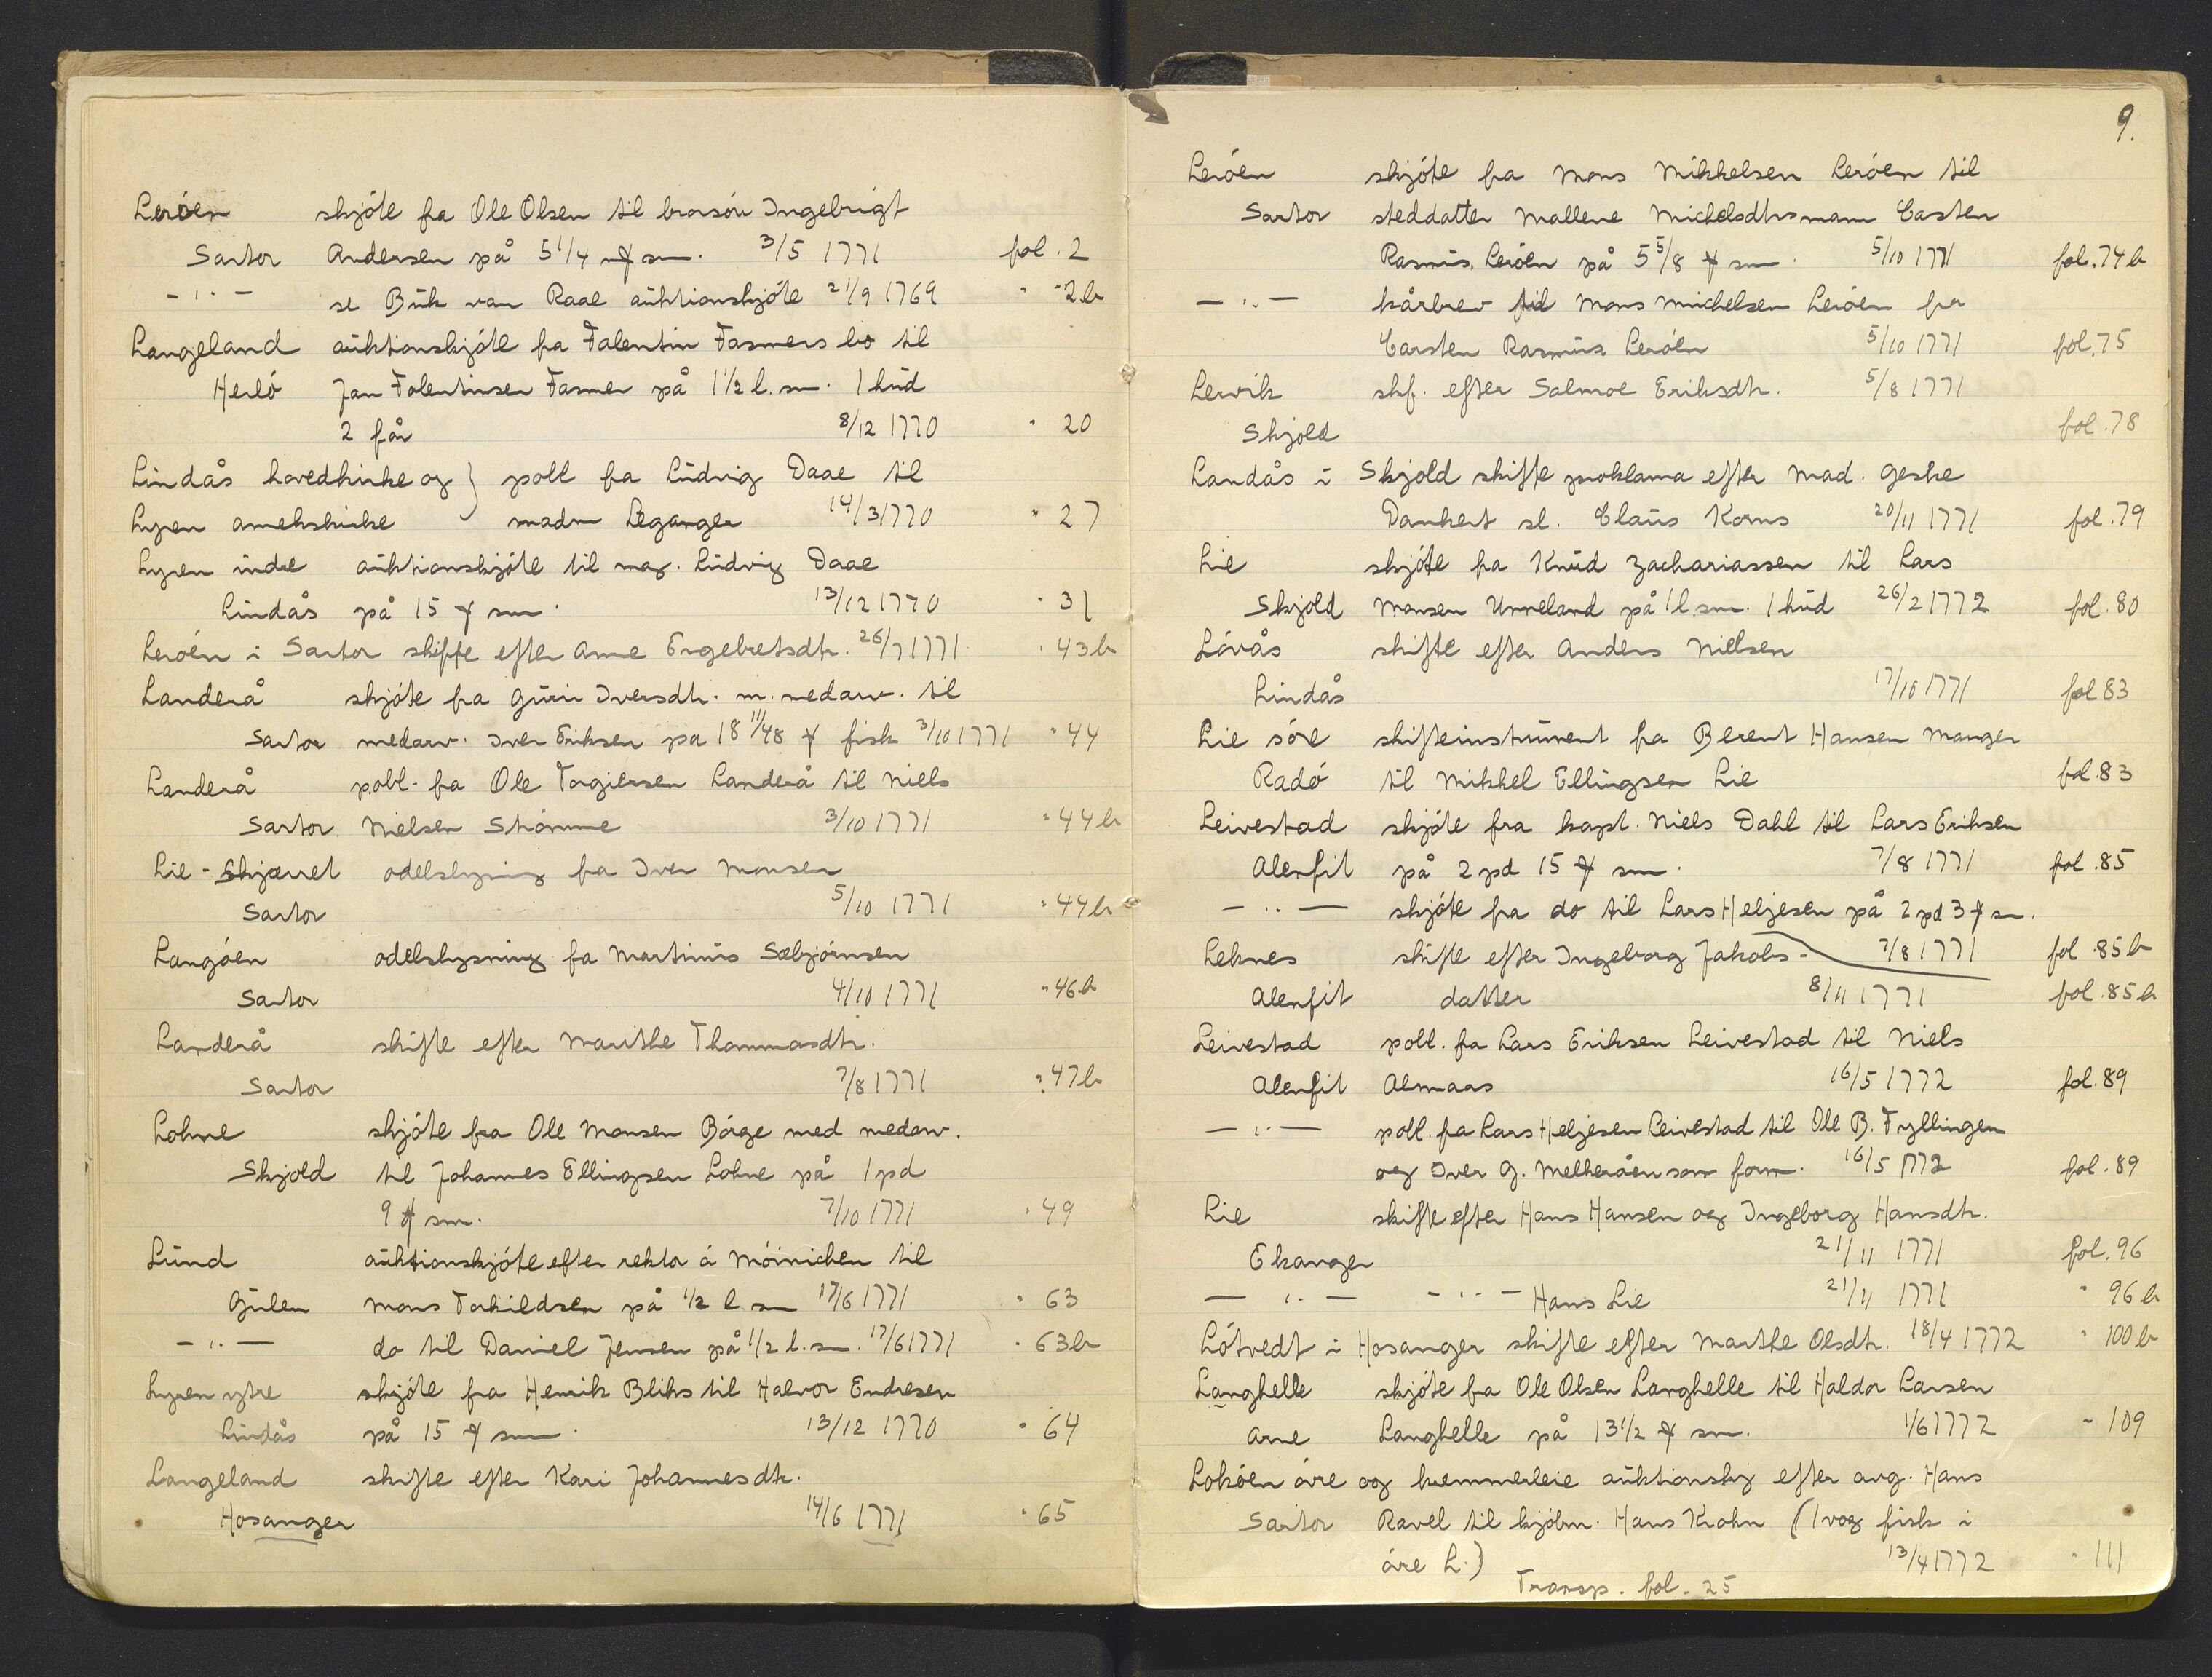 Leröen skjöte fra Ole Olsen til brorsön Ingebrigt
Sartor Andersen på 5 1/4 ℔ sm. 3/5 1771 fol. 2
- " - se Buk van Raae auktionskjöte 21/9 1769 " 2b
Langeland auktionskjöte fra Falentin Fasmers bo til
Herlö Jan Falentinsen Fasmer på 1 1/2 l. sm. 1 hud
2 får 8/12 1770 " 20
Lindås hovedkirke og } pobl fra Ludvig Daae til
Lygren annekskirke madm Leganger 14/3 1770 " 27
Lygren indre auktionskjöte til mag. Ludvig Daae
Lindås på 15 ℔ sm. 13/12 1770 " 31
Leröen i Sartor skifte efter Anne Engebretsdtr. 26/7 1771 " 43b
Landerå skjöte fra Guri Iversdtr. m. medarv. til
Sartor medarv. Iver Eriksen på 18 11/48 ℔ fisk 3/10 1771 " 44
Landerå pobl. fra Ole Torgiersen Landerå til Niels
Sartor Nielsen Strömme 3/10 1771 " 44b
Lie - Skjærvet odelslysning fra Iver Monsen
Sartor 5/10 1771 " 44b
Langöen odelslysning fra Martinus Sæbjörnsen
Sartor 4/10 1771 " 46b
Landerå skifte efter Marithe Thommasdtr.
Sartor 7/8 1771 " 47b
Lohne skjöte fra Ole Monsen Börge med medarv.
Skjold til Johannes Ellingsen Lohne på 1 pd
9 ℔ sm. 7/10 1771 " 49
Lund auktionskjöte efter rektor á Möinichen til
Gulen Mons Torkildsen på 1/2 l. sm 17/6 1771 " 63
- " - do til Daniel Jensen på 1/2 l. sm. 17/6 1771 " 63b
Lygren ytre skjöte fra Henrik Bliks til Halvor Endresen
Lindås på 15 ℔ sm. 13/12 1770 " 64
Langeland skifte efter Kari Johannesdtr.
Hosanger 14/6 1771 " 65
9.
Leröen skjöte fra Mons Mikkelsen Leröen til
Sartor steddatter Mallene Michelsdtrs mann Casten
Rasmus. Leröen på 5 5/8 ℔ sm. 5/10 1771 fol. 74b
- " - kårbrev til Mons Michelsen Leröen fra
Carsten Rasmus. Leröen 5/10 1771 fol. 75
Lervik skf. efter Salmoe Eriksdtr. 5/8 1771
Skjold fol. 78
Landås i Skjold skifte proklama efter Mad. Geske
Dankert sl. Claus Korns 20/11 1771 fol. 79
Lie skjöte fra Knud Zachariassen til Lars
Skjold Monsen Unneland på 1 l. sm. 1 hud 26/2 1772 fol. 80
Lövås skifte efter Anders Nielsen
Lindås 17/10 1771 fol 83
Lie söre skifteinstrument fra Berent Hansen Manger
Radö til Mikkel Ellingsen Lie fol. 83
Leivestad skjöte fra kapt. Niels Dahl til Lars Eriksen
Alenfit på 2 pd 15 ℔ sm. 7/8 1771 fol. 85
- " - skjöte fra do til Lars Heljesen på 2 pd 3 ℔ sm.
Leknes skifte efter Ingeborg Jakobs- 7/8 1771 fol 85b
Alenfit datter 8/11 1771 fol. 85b
Leivestad pobl. fra Lars Eriksen Leivestad til Niels
Alenfit Almaas 16/5 1772 fol. 89
- " - pobl. fra Lars Heljesen Leivestad til Ole B. Fyllingen
og Iver G. Melheråen som form. 16/5 1772 fol. 89
Lie skifte efter Hans Hansen og Ingeborg Hansdtr.
Ekanger 21/11 1771 fol. 96
- " - - " - Hans Lie 21/11 1771 " 96b
Lötvedt i Hosanger skifte efter Marthe Olsdtr. 18/4 1772 " 100b
Langhelle skjöte fra Ole Olsen Langhelle til Haldor Larsen
Arne Langhelle på 13 1/2 ℔ sm. 1/6 1772 " 109
Loköen övre og kremmerleie auktionskj efter avg. Hans
Sartor Ravel til kjöbm. Hans Krohn (1 vog fisk i
övre L.) 13/4 1772 " 111
Transp. fol. 25